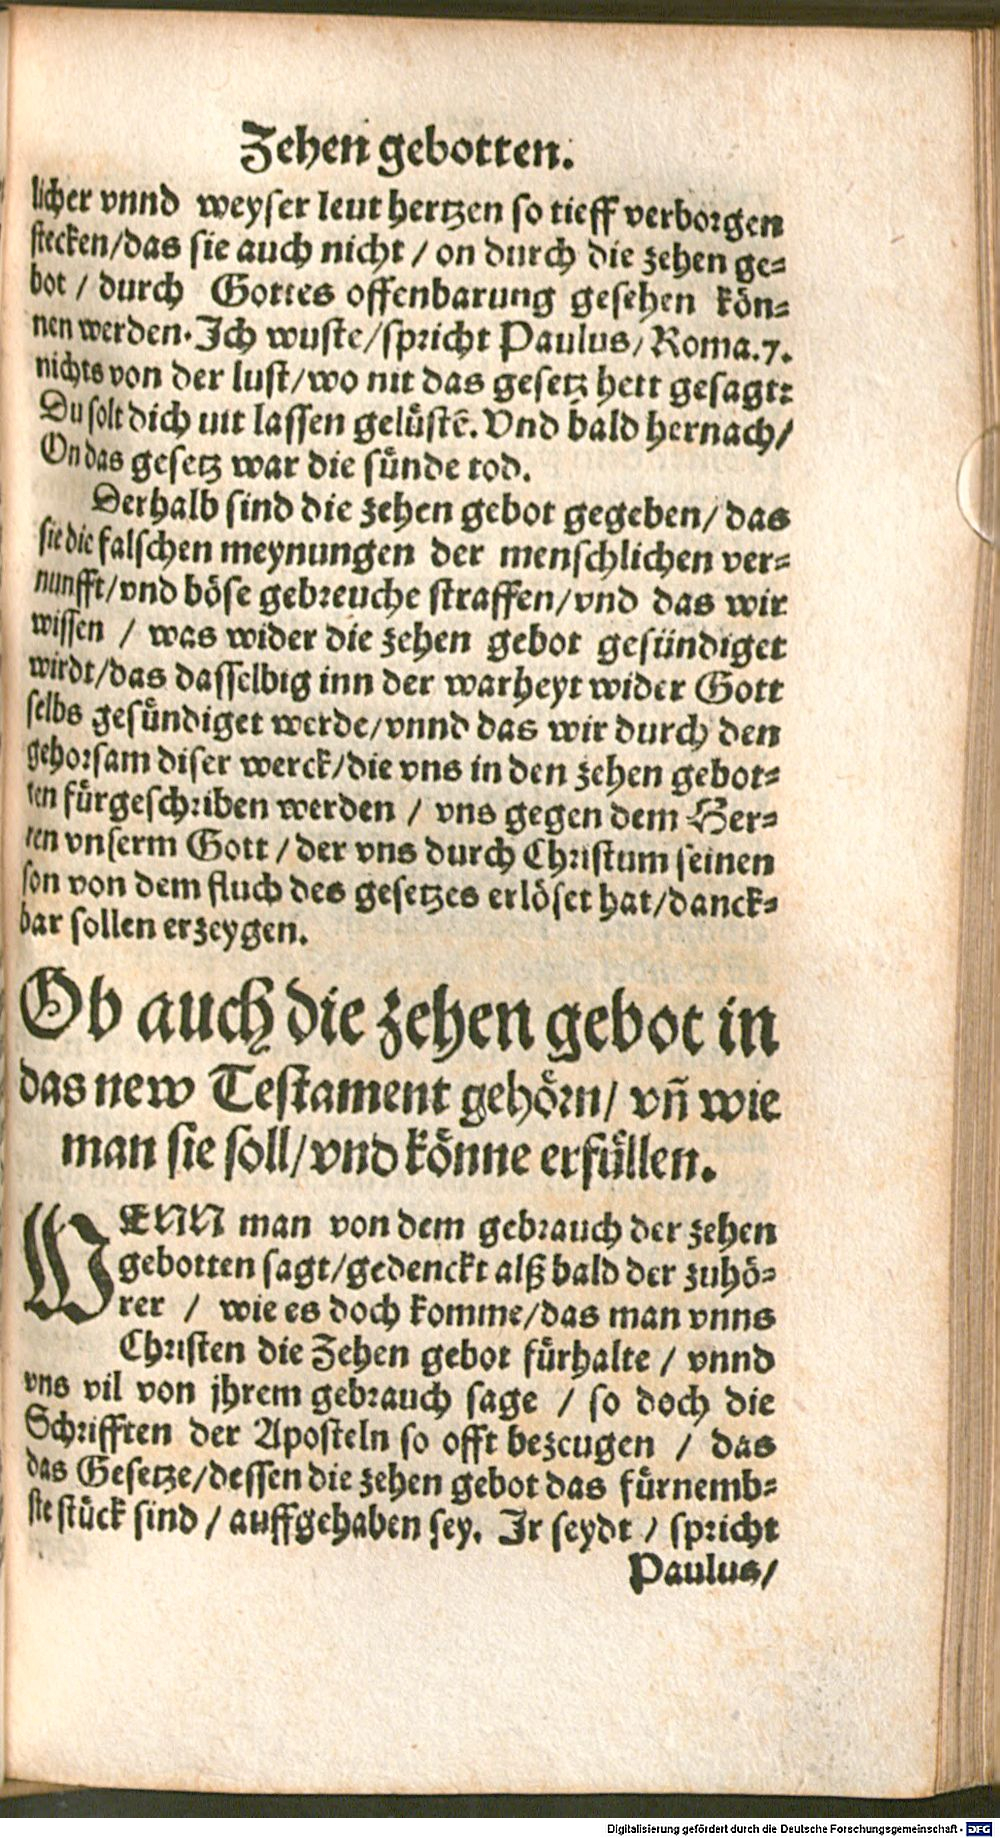 Zehen gebotten.
licher vnnd weyser leut hertzen so tieff verborgen
stecken/das sie auch nicht / on durch die zehen ge⸗
bot / durch Gottes offenbarung gesehen kön⸗
nen werden. Ich wuste/spricht Paulus/ Roma.7.
nichts von der lust/wo nit das gesetz hett gesagt:
Du solt dich nit lassen gelüstē. Vnd bald hernach/
On das gesetz war die sünde tod.
Derhalb sind die zehen gebot gegeben/ das
sie die falschen meynungen der menschlichen ver⸗
nunfft/vnd böse gebreuche straffen/vnd das wir
wissen / was wider die zehen gebot gesündiget
wirdt/das dasselbig inn der warheyt wider Gott
selbs gesündiget werde/vnnd das wir durch den
gehorsam diser werck/die vns in den zehen gebot⸗
ten fürgeschriben werden / vns gegen dem Her⸗
ren vnserm Gott / der vns durch Christum seinen
son von dem fluch des gesetzes erlöset hat/danck⸗
bar sollen erzeygen.
Ob auch die zehen gebot in
das new Testament gehörn/ vñ wie
man sie soll/vnd könne erfüllen.
WENN man von dem gebrauch der zehen
gebotten sagt/gedenckt alß bald der zuhö⸗
rer / wie es doch komme/das man vnns
Christen die Zehen gebot fürhalte / vnnd
vns vil von jhrem gebrauch sage / so doch die
Schrifften der Aposteln so offt bezeugen / das
das Gesetze/dessen die zehen gebot das fürnemb⸗
ste stück sind / auffgehaben sey. Ir seydt / spricht
Paulus/
Digitalisierung gefördert durch die Deutsche Forschungsgemeinschaft - DFG